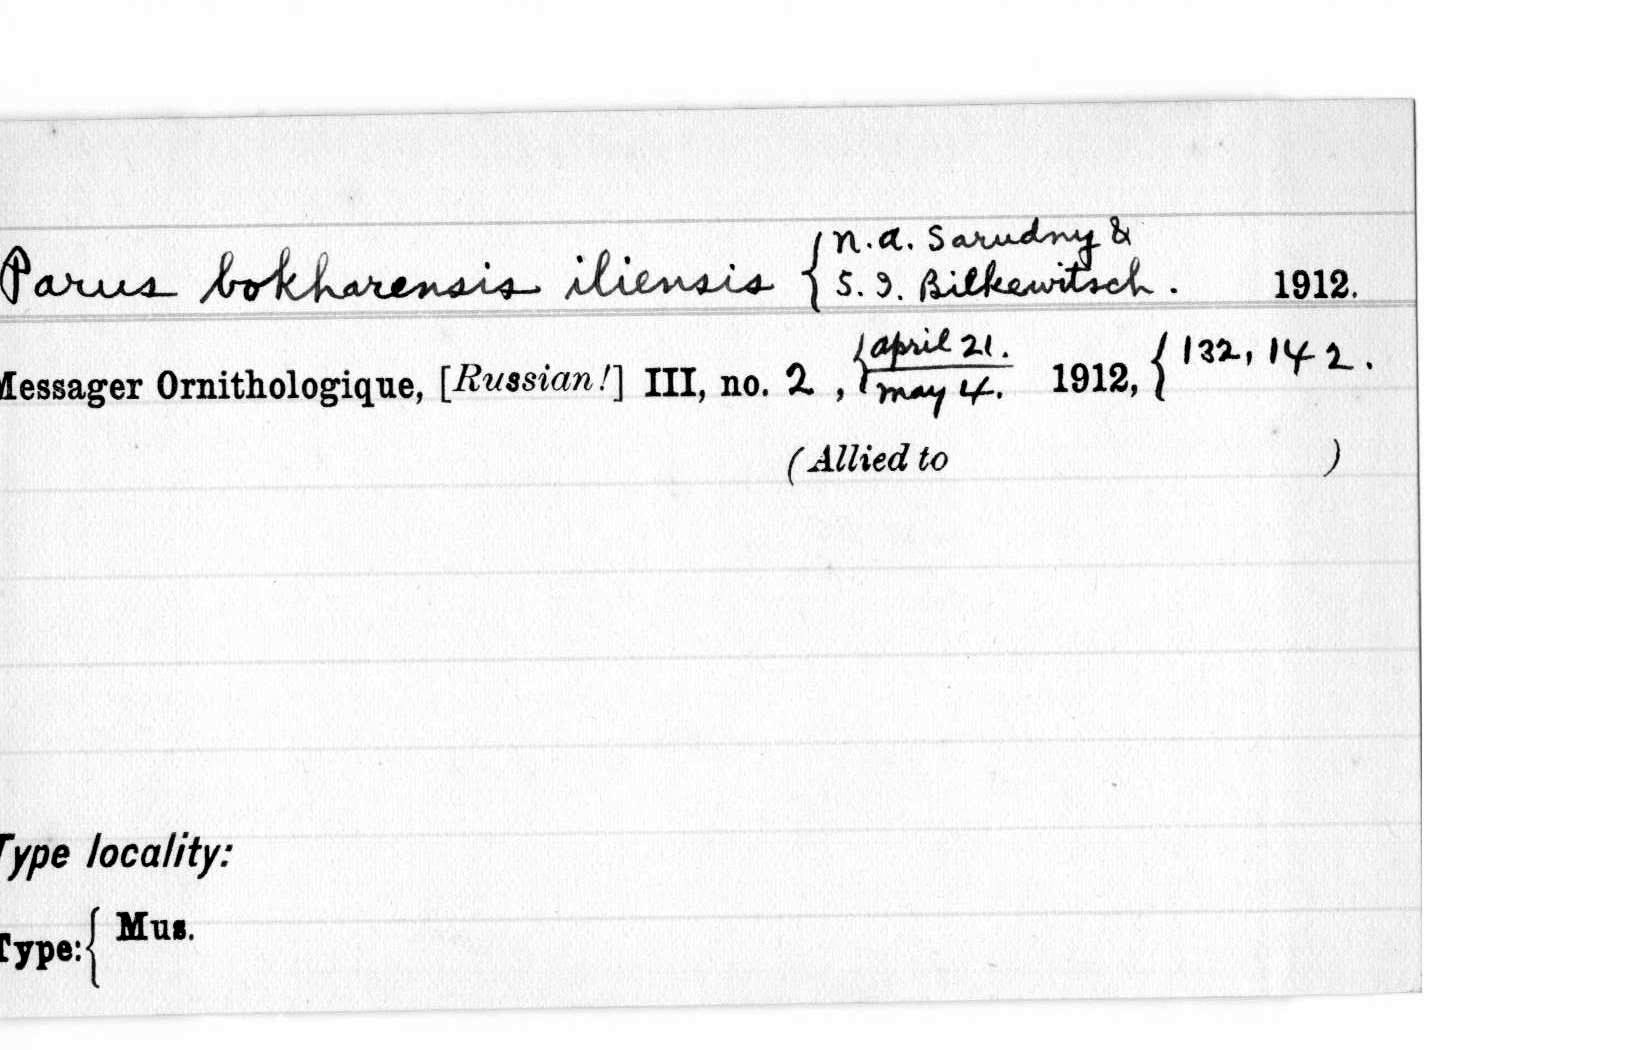 Parus bokharensis iliensis { N. A. Sarudny & S. I. Bilkewitsch. 1912.
Messager Ornithologique, [Russian!] III, no. 2, { April 21. / May 4. 1912, { 132, 142.
(Allied to )
Type locality:
Type: { Mus.